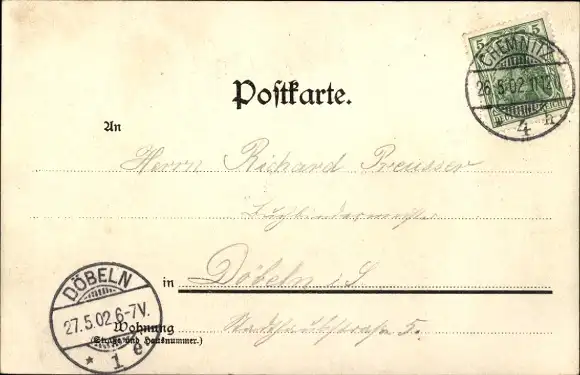 5 5
CHEMNITZ
26.5.02.11-12
* 4 h
Postkarte.
An
Herrn Richard Preusser
Buchbindermeister
in Döbeln i. S
DÖBELN
27.5.02.6-7V.
* 1 e
Wohnung
(Straße und Hausnummer.)
5.